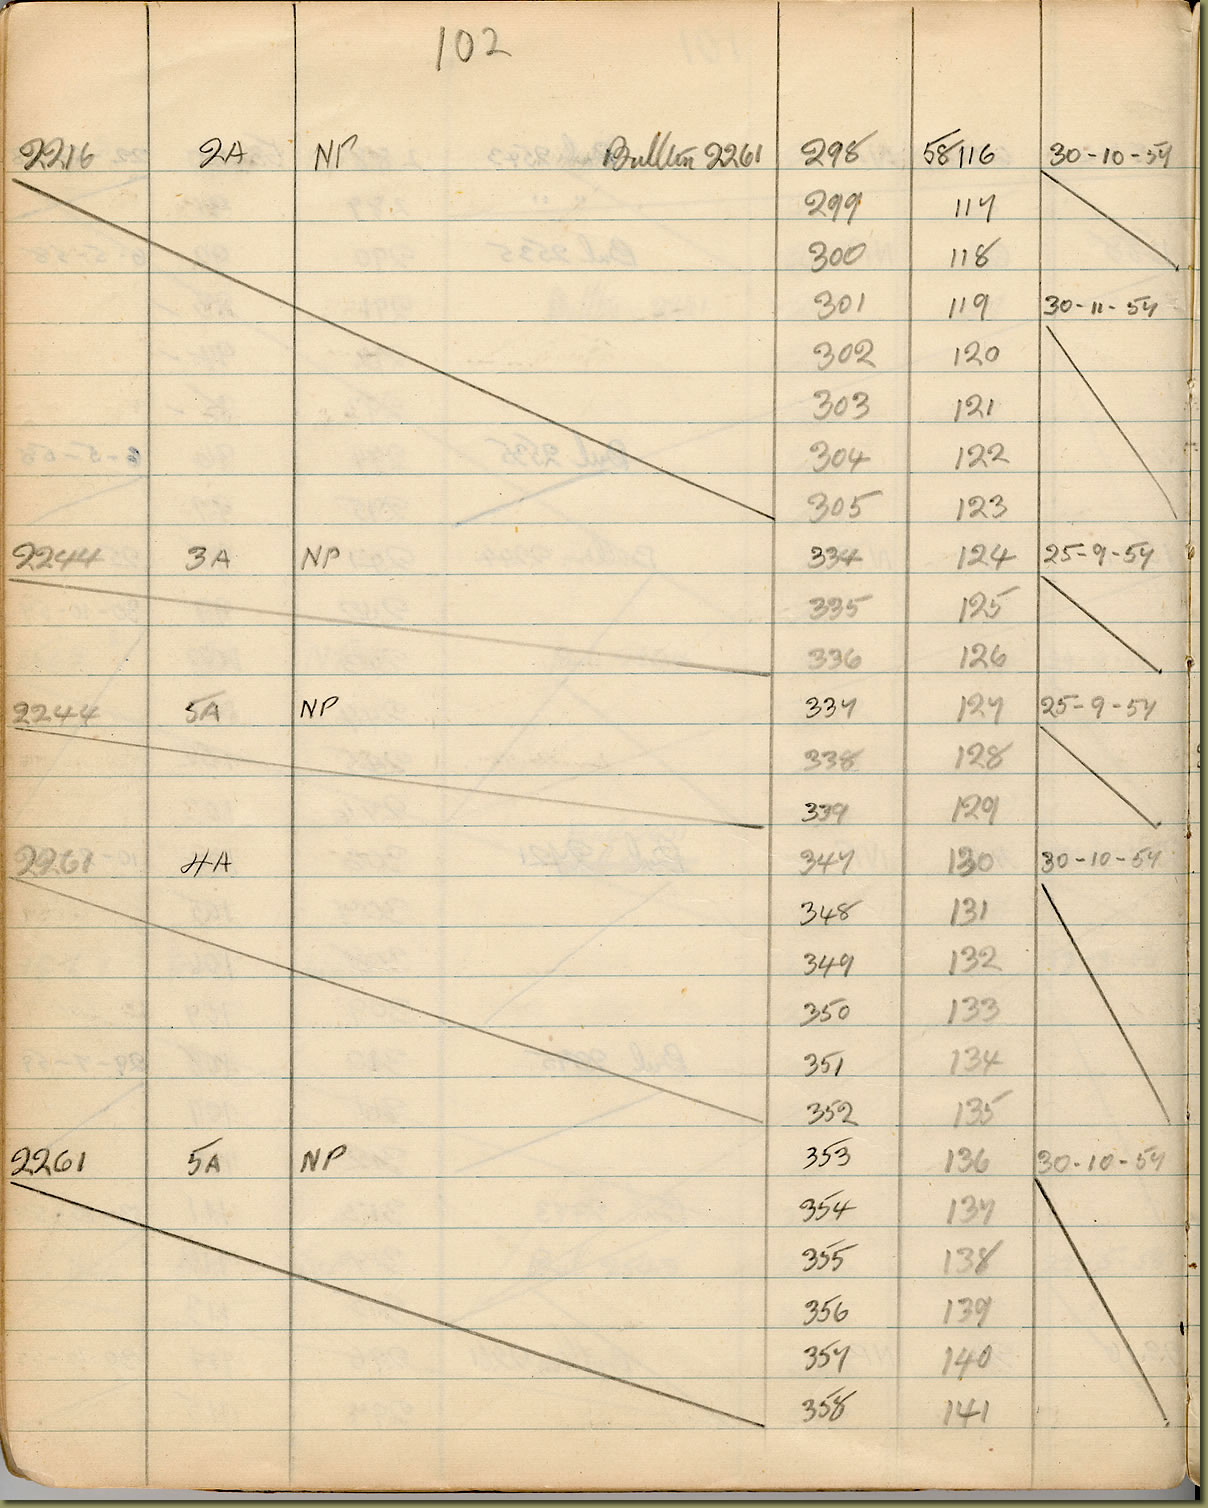 102
2216 2A NP Bulletin 2261 298 58116 30-10-57
299 117
300 118
301 119 30-11-57
302 120
303 121
304 122
305 123
2244 3A NP 334 124 25-9-57
335 125
336 126
2244 5A NP 337 127 25-9-57
338 128
339 129
2261 4A 347 130 30-10-57
348 131
349 132
350 133
351 134
352 135
2261 5A NP 353 136 30-10-57
354 137
355 138
356 139
357 140
358 141